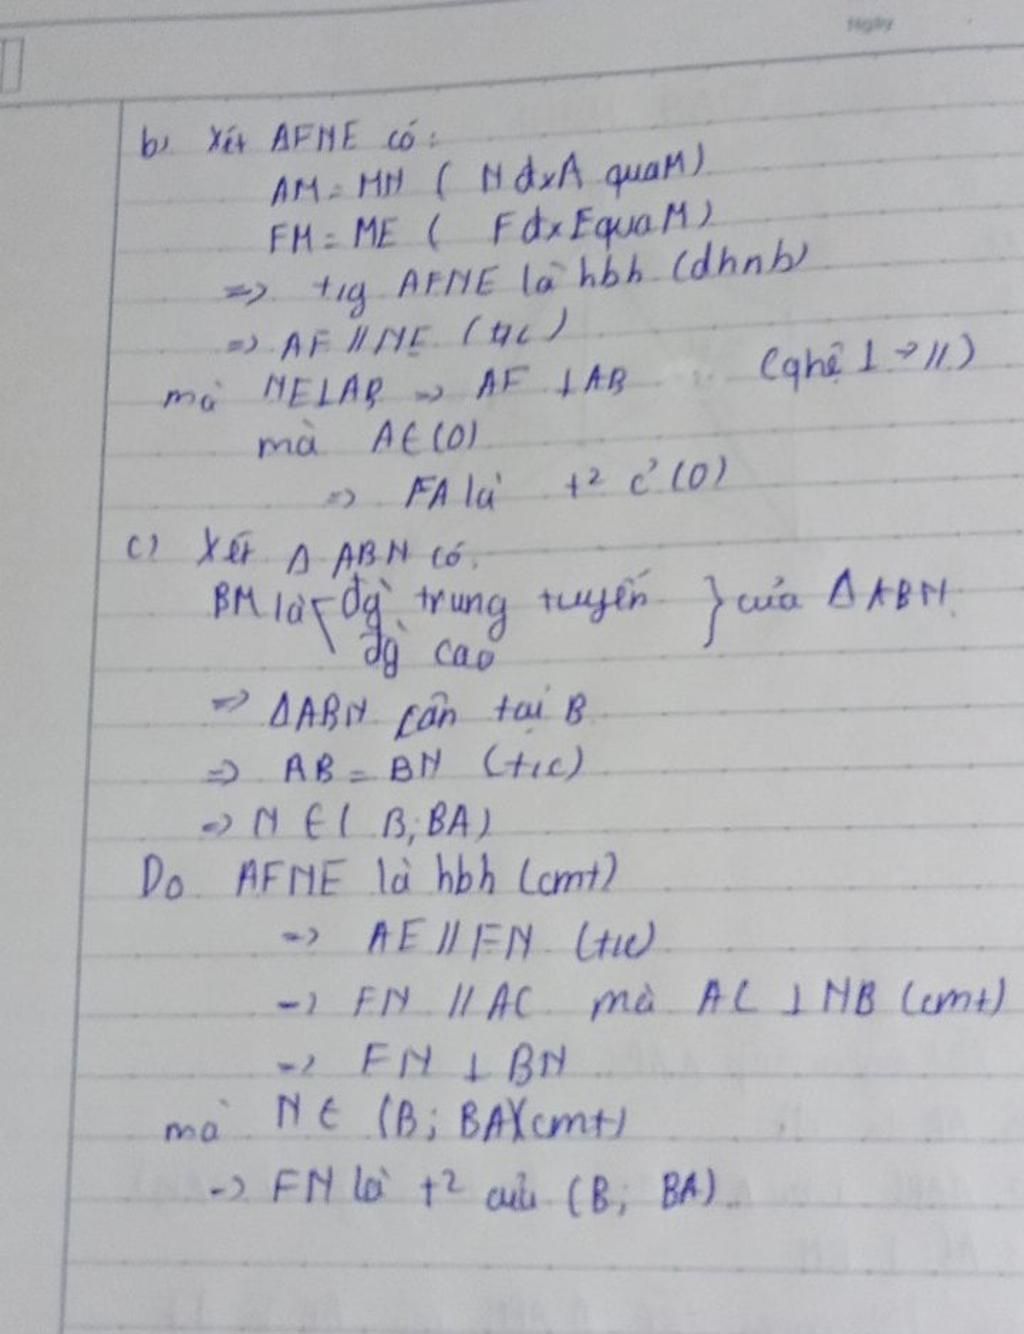 Ngày
b) Xét AFNE có:
AM = MN ( N đx A qua M)
FM = ME ( F đx E qua M)
=> tıg AFNE là hbh (dhnb)
=> AF // NE (t/c)
mà NE ⊥ AB => AF ⊥ AB (qhệ ⊥ -> //)
mà A ∈ (O)
=> FA là t² c' (O)
c) Xét Δ ABN có:
BM là { đg trung tuyến } của Δ ABN
đg cao
=> ΔABN cân tại B
=> AB = BN (t/c)
=> N ∈ ( B; BA)
Do AFNE là hbh (cmt)
=> AE // FN (t/c)
-> FN // AC mà AC ⊥ NB (cmt)
-> FN ⊥ BN
mà N ∈ (B; BA)(cmt)
-> FN là t² của (B; BA)